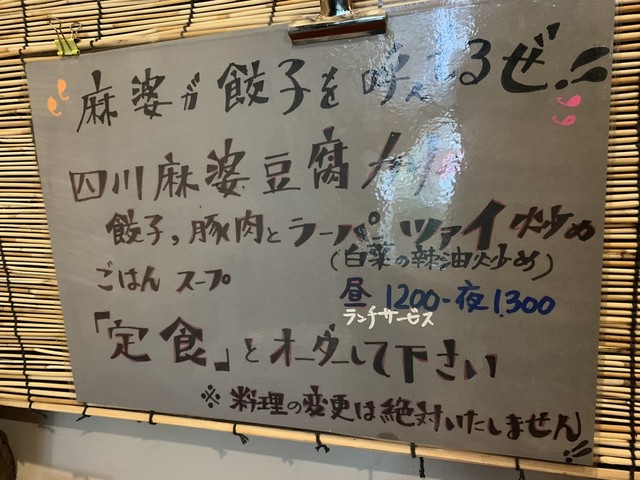 麻婆が餃子を呼んでるぜ!!
四川麻婆豆腐
餃子、豚肉とラーパーツァイ炒め
(白菜の辣油炒め)
ごはん スープ
昼 1200-夜1.300
ランチサービス
「定食」とオーダーして下さい
※料理の変更は絶対いたしません!!